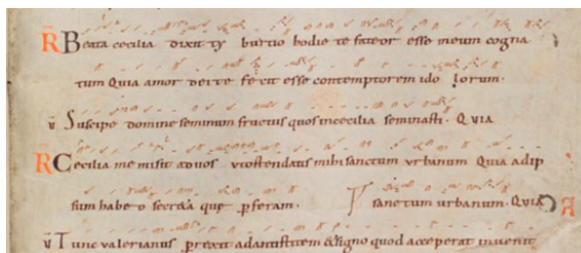 R Beata cecilia dixit ty burtio hodie te fateor esse meum cogna
tum Quia amor dei te fecit esse contemptorem ido lorum.
V Suscipe domine seminum fructus quos in cecilia seminasti. Quia
R Cecilia me misit ad uos ut ostendatis mihi sanctum urbanum Quia ad ip
sum habeo secreta que perferam. sanctum urbanum. Quia
V Tunc valerianus perrexit ad antistitem & signo quod acceperat inuenit